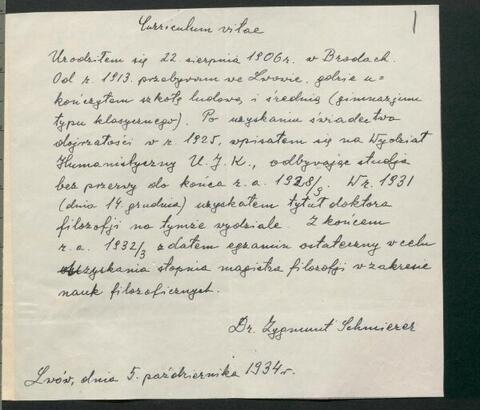 Curriculum vitae
Urodziłem się 22 sierpnia 1906 r. w Brodach.
Od r. 1913. przebywam we Lwowie, gdzie u=
kończyłem szkołę ludową i średnią (gimnazjum
typu klasycznego). Po uzyskaniu świadectwa
dojrzałości w r. 1925, wpisałem się na Wydział
Humanistyczny U. J. K., odbywając studja
bez przerwy do końca r. a. 1928/9. W r. 1931
(dnia 14 grudnia) uzyskałem tytuł doktora
filozofji na tymże wydziale. Z końcem
r. a. 1932/3 zdałem egzamin ostateczny w celu
uzyskania stopnia magistra filozofji w zakresie
nauk filozoficznych.
Dr. Zygmunt Schmierer
Lwów, dnia 5. października 1934 r.